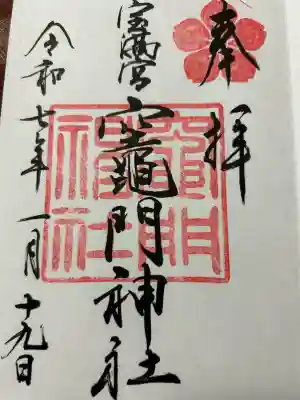 奉拝
宝満宮
竈門神社
令和七年一月十九日
竈門
神社